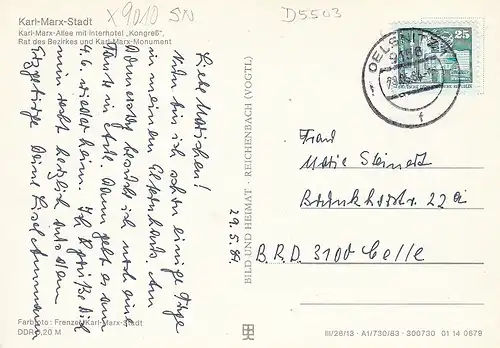 Karl-Marx-Stadt
Karl-Marx-Allee mit Interhotel „Kongreß",
Rat des Bezirkes und Karl-Marx-Monument
X9010 SN
D5503
OELSNITZ
25
f
Liebe Mariechen!
Nun bin ich schon einige Tage
in meinem Elternhaus. Am
Donnerstag besuche ich noch eine
Tante in Aue. Dann geht es am
4.6. wieder heim. Ich grüße Dich
nun recht herzlich aus dem
Erzgebirge Deine Lisel Ammermann
29.5.84
BILD UND HEIMAT · REICHENBACH (VOGTL)
Frau
Marie Steinert
Bahnhofstr. 22 a
B.R.D. 3100 Celle
Farbfoto: Frenzel, Karl-Marx-Stadt
DDR 0,20 M
III/26/13 · A1/730/83 · 300730 01 14 0679